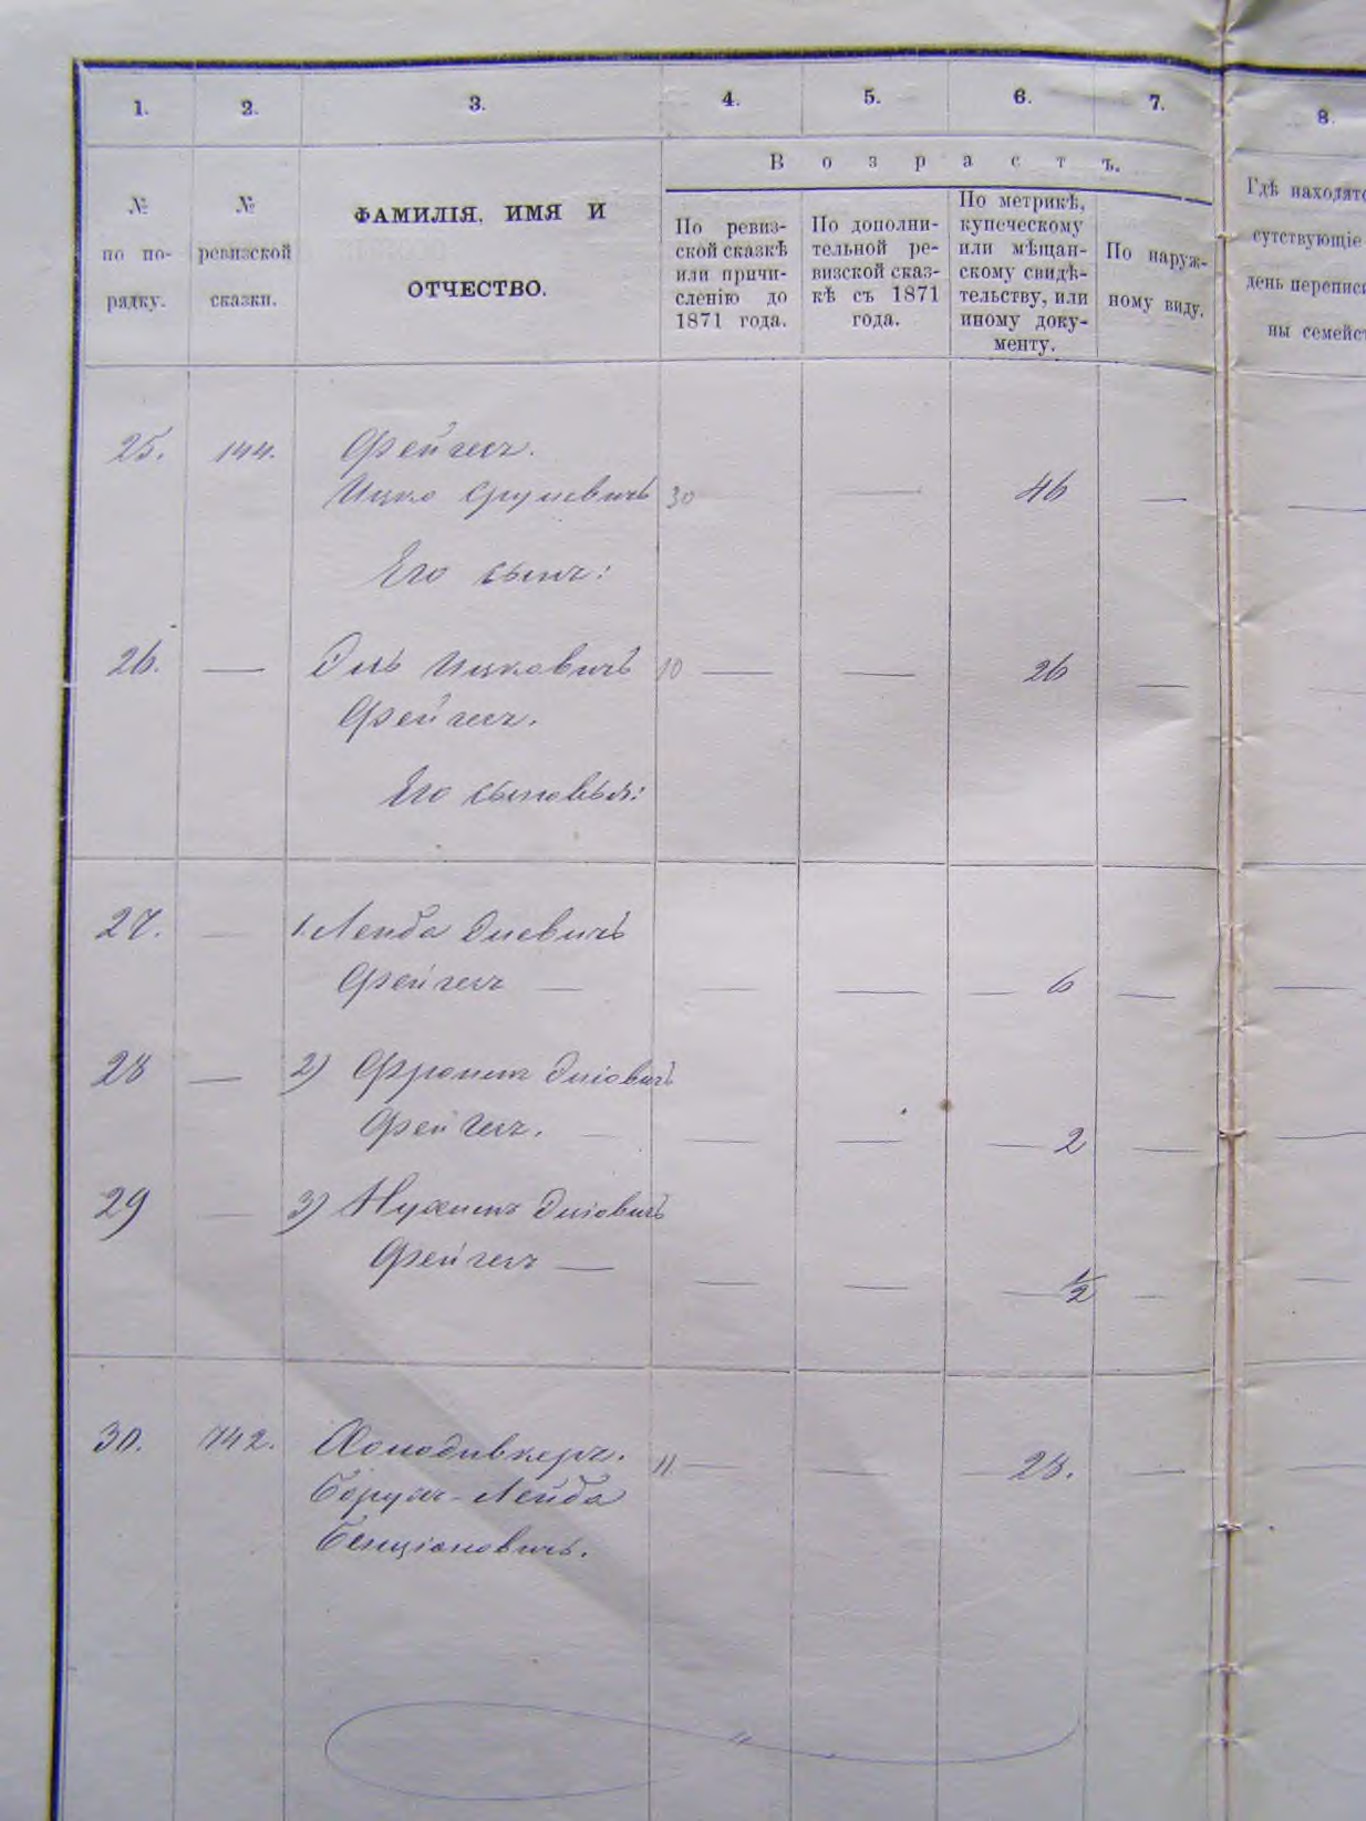 1. 2. 3. 4. 5. 6. 7. 8.
В о з р а с т ъ.
№ по по- рядку.
№ ревизской сказки.
ФАМИЛІЯ. ИМЯ И
ОТЧЕСТВО.
По ревиз-
ской сказкѣ
или причи-
сленію до
1871 года.
По дополни-
тельной ре-
визской сказ-
кѣ съ 1871
года.
По метрикѣ,
купеческому
или мѣщан-
скому свидѣ-
тельству, или
иному доку-
менту.
По наруж-
ному виду.
Гдѣ находятс
сутствующіе
день переписи
ны семейст
25. 144. Фейгин.
Ицко Срулевичъ 30 — 46 —
Его сынъ:
26. — Эль Ицковичъ 10 — — 26 —
Фейгин.
Его сыновья:
27. — 1. Лейба Элевичъ
Фейгин — — — — 6 —
28 — 2) Фроим Эліовичъ
Фейгин. — — — — 2 —
29 — 3) Нухим Эліовичъ
Фейгин — — — — 1/2 —
30. 742. Холодивкер. 11 — — — 28. —
Борух-Лейба
Бенціоновичъ.